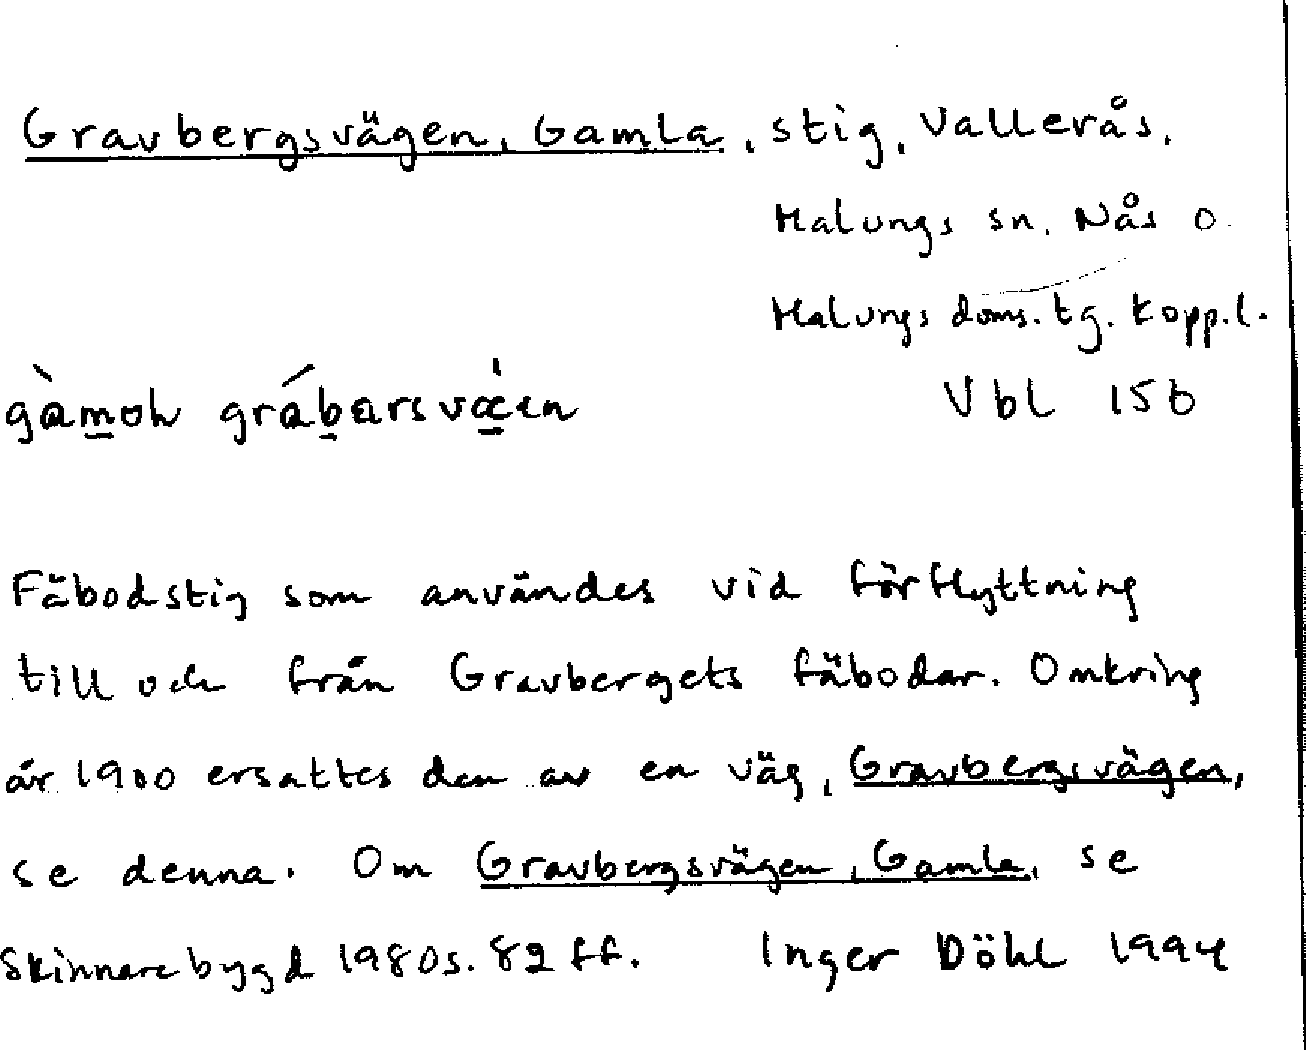 Gravbergsvägen, Gamla, stig, Vallerås,
Malungs sn. Nås o
Malungs doms. tg. Kopp.l.
Vbl 156
Fäbodstig som användes vid förflyttning
till och från Gravbergets fäbodar. Omkring
år 1900 ersattes den av en väg, Gravbergsvägen,
se denna. Om Gravbergsvägen, Gamla, se
Skinnarebygd 1980 s. 82 ff. Inger Döhl 1994